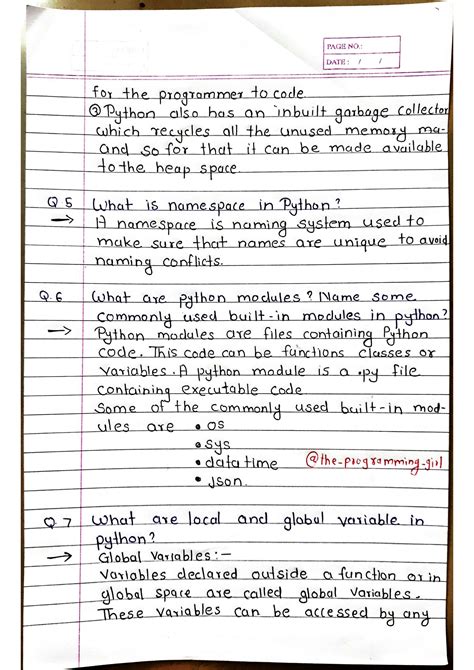 PAGE NO.:
DATE: / /
for the programmer to code
③ Python also has an inbuilt garbage collector
which recycles all the unused memory ma-
and so for that it can be made available
to the heap space.
Q 5 What is namespace in Python?
→ A namespace is naming system used to
make sure that names are unique to avoid
naming conflicts.
Q.6 What are python modules? Name some
commonly used built-in modules in python?
→ Python modules are files containing Python
code. This code can be functions classes or
Variables. A python module is a .py file
containing executable code
Some of the commonly used built-in mod-
ules are • os
• sys
• data time @the-programming-girl
• Json.
Q 7 What are local and global variable in
python?
→ Global Variables :-
Variables declared outside a function or in
global space are called global Variables.
These Variables can be accessed by any